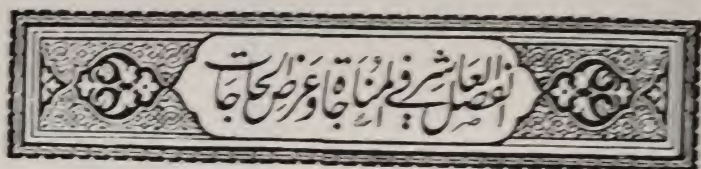 الفصل العاشر في المناجاة وعرض الحاجات